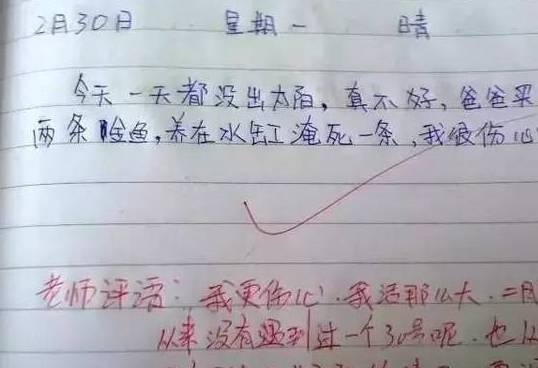 2月30日 星期一 晴
今天一天都没出太阳，真不好，爸爸买
两条金鱼，养在水缸淹死一条，我很伤心
老师评语：我更伤心，我活那么大，二月
从来没有遇到过一个30号呢，也